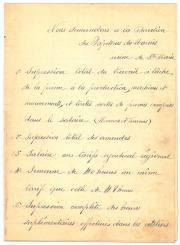 Nous demandons à la Direction
des Papeteries du Marais
usine de Ste Marie
1° Supression total du travail à tâche
de la prime à la production, machine et
mouvements, et toutes sortes de primes comprises
dans le salaire (Hommes et Femmes)
2° Supression total des amendes
3° Salaire au tarifs syndical régional
4° Semaine de 40 heures au même
tarif que celle de 48 heures
5° Supression complète des heures
suplémentaires effectuées dans les ateliers